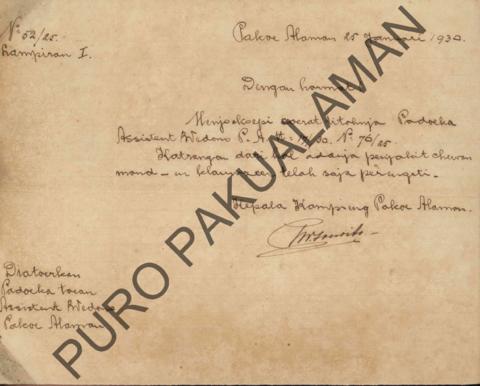 No 52/25.
Lampiran I.
Pakoe Alaman 25 Januari 1930.
Dengan hormat
Menjoesoepi soerat titahnja Padoeka
Assistent Wedono P. A. tt: 17/30. No 76/25.
Katrangan dari hal adanja penjakit
mond en klauwzeer telah saja
Kepala Kampoeng Pakoe Alaman.
Diatoerken
Padoeka toean
Assistent Wedono
Pakoe Alaman
PURO PAKUALAMAN